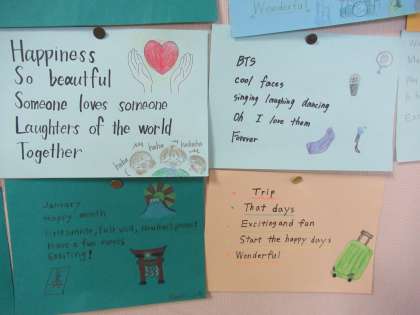 Wonderful
Happiness
So beautiful
Someone loves someone
Laughters of the world
Together
haha
haha
hahaha
BTS
cool faces
singing laughing dancing
Oh I love them
Forever
January
Happy month
Have a fun
Exciting!
Trip
That days
Exciting and fun
Start the happy days
Wonderful